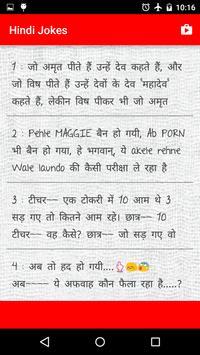 10:16
Hindi Jokes
1 : जो अमृत पीते हैं उन्हें देव कहते हैं, और
जो विष पीते हैं उन्हें देवों के देव 'महादेव'
कहते हैं, लेकीन विष पीकर भी जो अमृत
2 : Pehle MAGGIE बैन हो गयी, Ab PORN
भी बैन हो गया, हे भगवान्, ये akele rehne
Wale laundo की कैसी परीक्षा ले रहा है
3 : टीचर-- एक टोकरी में 10 आम थे 3
सड़ गए तो कितने आम रहे। छात्र-- 10
टीचर-- वो कैसे? छात्र-- जो सड़ गए वो
4 : अब तो हद हो गयी....
अब---- ये अफवाह कौन फैला रहा है.....?